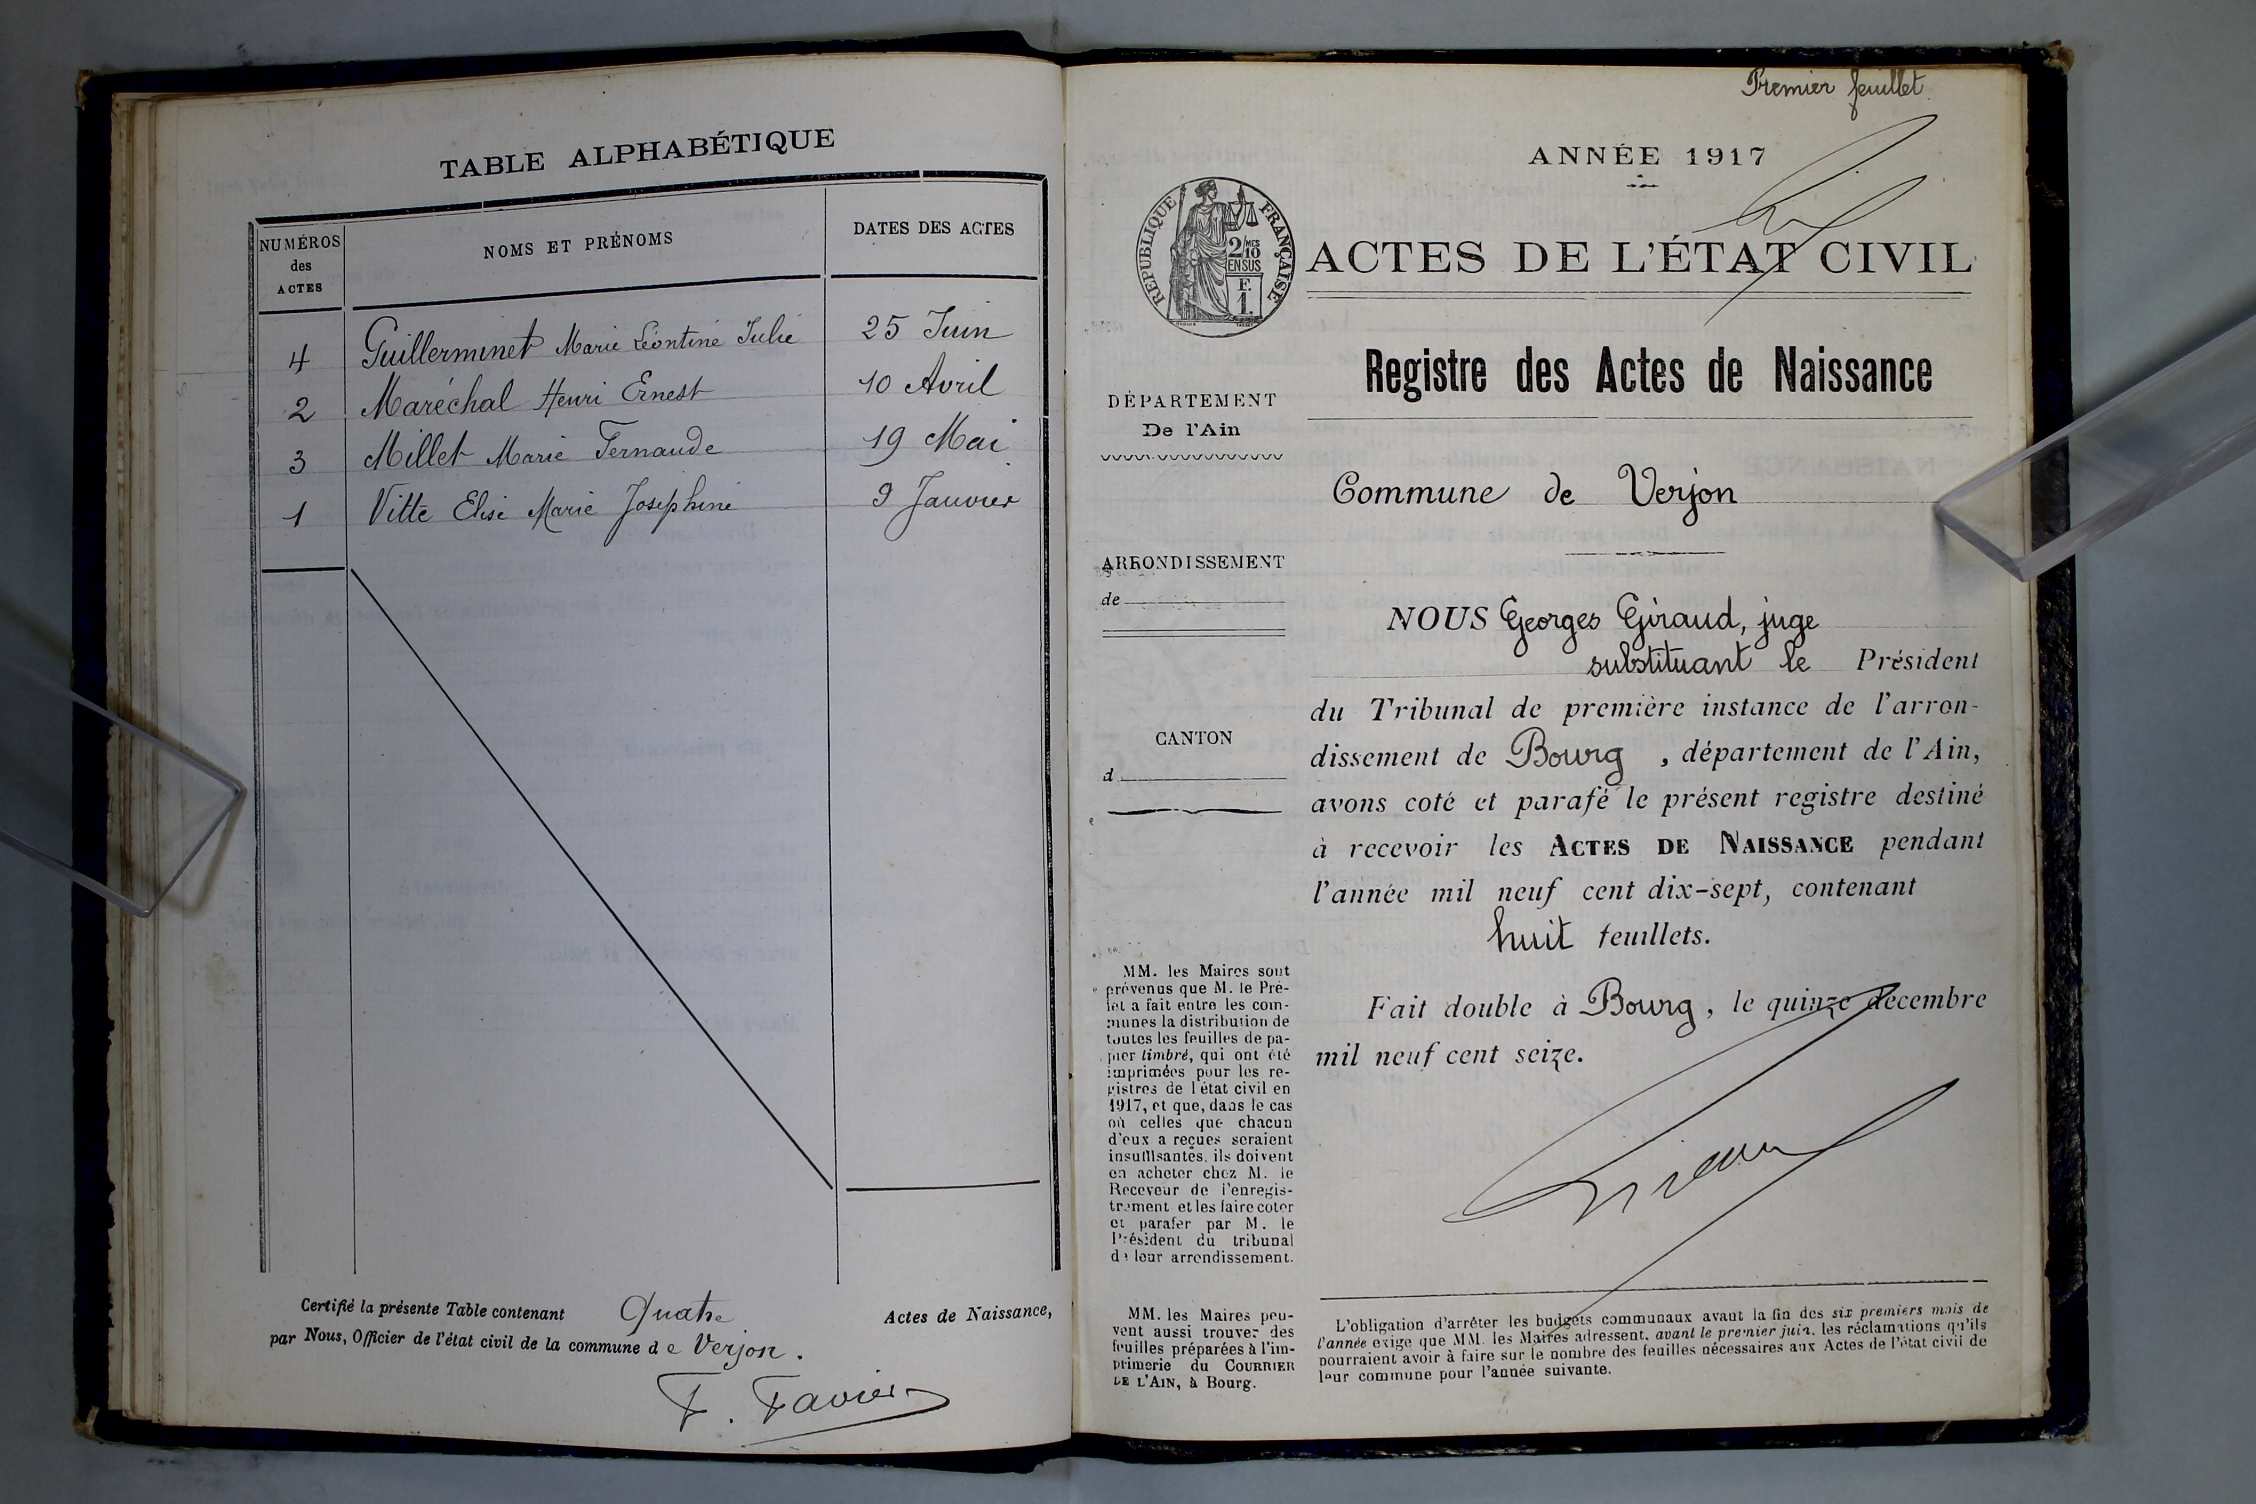 TABLE ALPHABÉTIQUE
NUMÉROS
des
ACTES
NOMS ET PRÉNOMS
DATES DES ACTES
4 Guillerminet Marie Léontine Julie 25 Juin
2 Maréchal Henri Ernest 10 Avril
3 Millet Marie Fernande 19 Mai
1 Vitte Elise Marie Joséphine 9 Janvier
Certifié la présente Table contenant Quatre Actes de Naissance,
par Nous, Officier de l'état civil de la commune de Verjon.
F. Favier
Premier feuillet
ANNÉE 1917
RÉPUBLIQUE FRANÇAISE
2/10 MES
EN SUS
F.
1.
ACTES DE L'ÉTAT CIVIL
Registre des Actes de Naissance
DÉPARTEMENT
De l'Ain
Commune de Verjon
ARRONDISSEMENT
de
CANTON
d
NOUS Georges Giraud, juge
substituant le Président
du Tribunal de première instance de l'arron-
dissement de Bourg, département de l'Ain,
avons coté et parafé le présent registre destiné
à recevoir les ACTES DE NAISSANCE pendant
l'année mil neuf cent dix-sept, contenant
huit feuillets.
Fait double à Bourg, le quinze décembre
mil neuf cent seize.
Giraud
MM. les Maires sont
prévenus que M. le Pré-
fet a fait entre les com-
munes la distribution de
toutes les feuilles de pa-
pier timbré, qui ont été
imprimées pour les re-
gistres de l'état civil en
1917, et que, dans le cas
où celles que chacun
d'eux a reçues seraient
insuffisantes, ils doivent
en acheter chez M. le
Receveur de l'enregis-
trement et les faire coter
et parafer par M. le
Président du tribunal
de leur arrondissement.
MM. les Maires peu-
vent aussi trouver des
feuilles préparées à l'im-
primerie du COURRIER
DE L'AIN, à Bourg.
L'obligation d'arrêter les budgets communaux avant la fin des six premiers mois de
l'année exige que MM. les Maires adressent, avant le premier juin, les réclamations qu'ils
pourraient avoir à faire sur le nombre des feuilles nécessaires aux Actes de l'état civil de
leur commune pour l'année suivante.